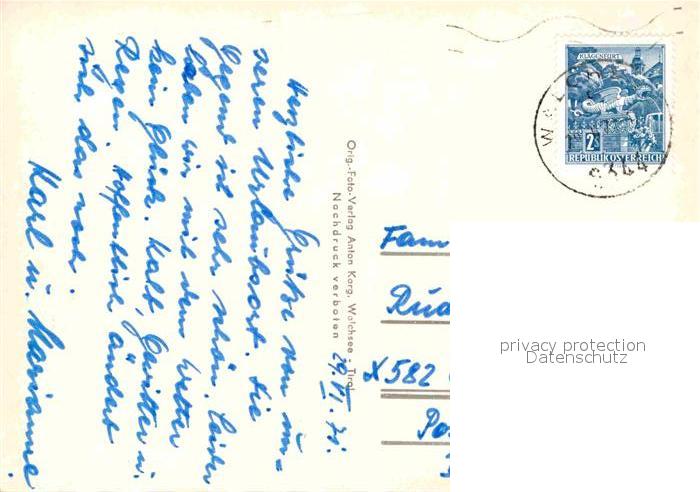 29. VI. 71.
Herzliche Grüße von un-
serem Urlaubsort. Die
Gegend ist sehr schön. Leider
haben wir mit dem Wetter
kein Glück. Kalt, Gewitter u.
Regen. Hoffentlich ändert
sich das noch.
Karl u. Marianne.
Orig.-Foto-Verlag Anton Karg, Walchsee - Tirol
Nachdruck verboten
KLAGENFURT
2S
REPUBLIK ÖSTERREICH
WALCHSEE
6344
Fam
X582
privacy protection
Datenschutz